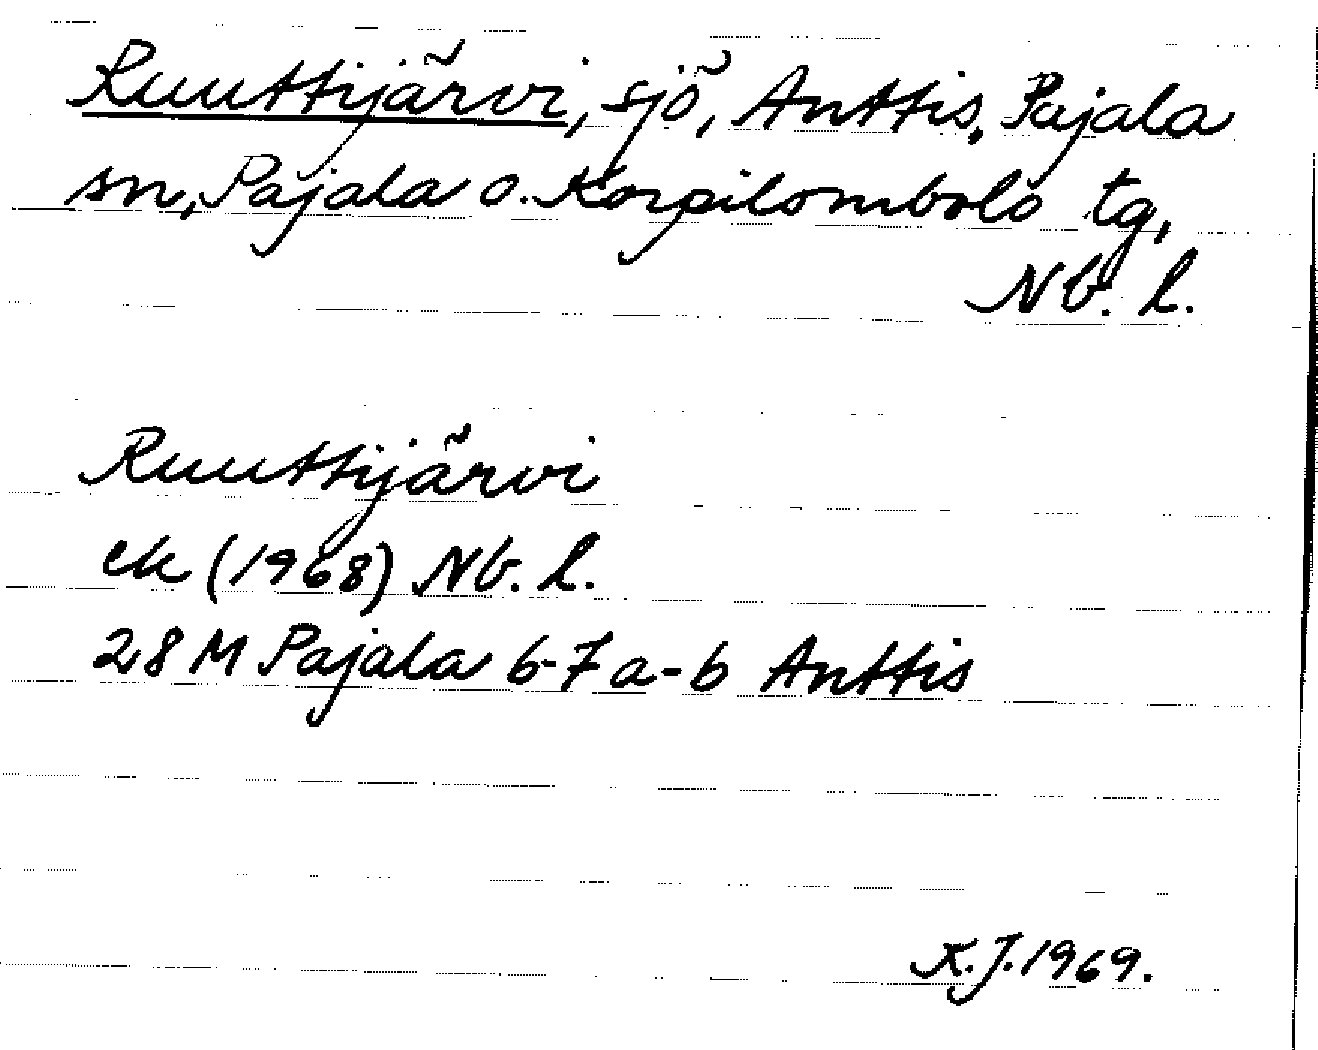 Ruuttijärvi, sjö, Anttis, Pajala
sn, Pajala o. Korpilombolo tg,
Nb. l.
Ruuttijärvi
ek (1968) Nb. l.
28 M Pajala 6-7 a-b Anttis
K.J. 1969.